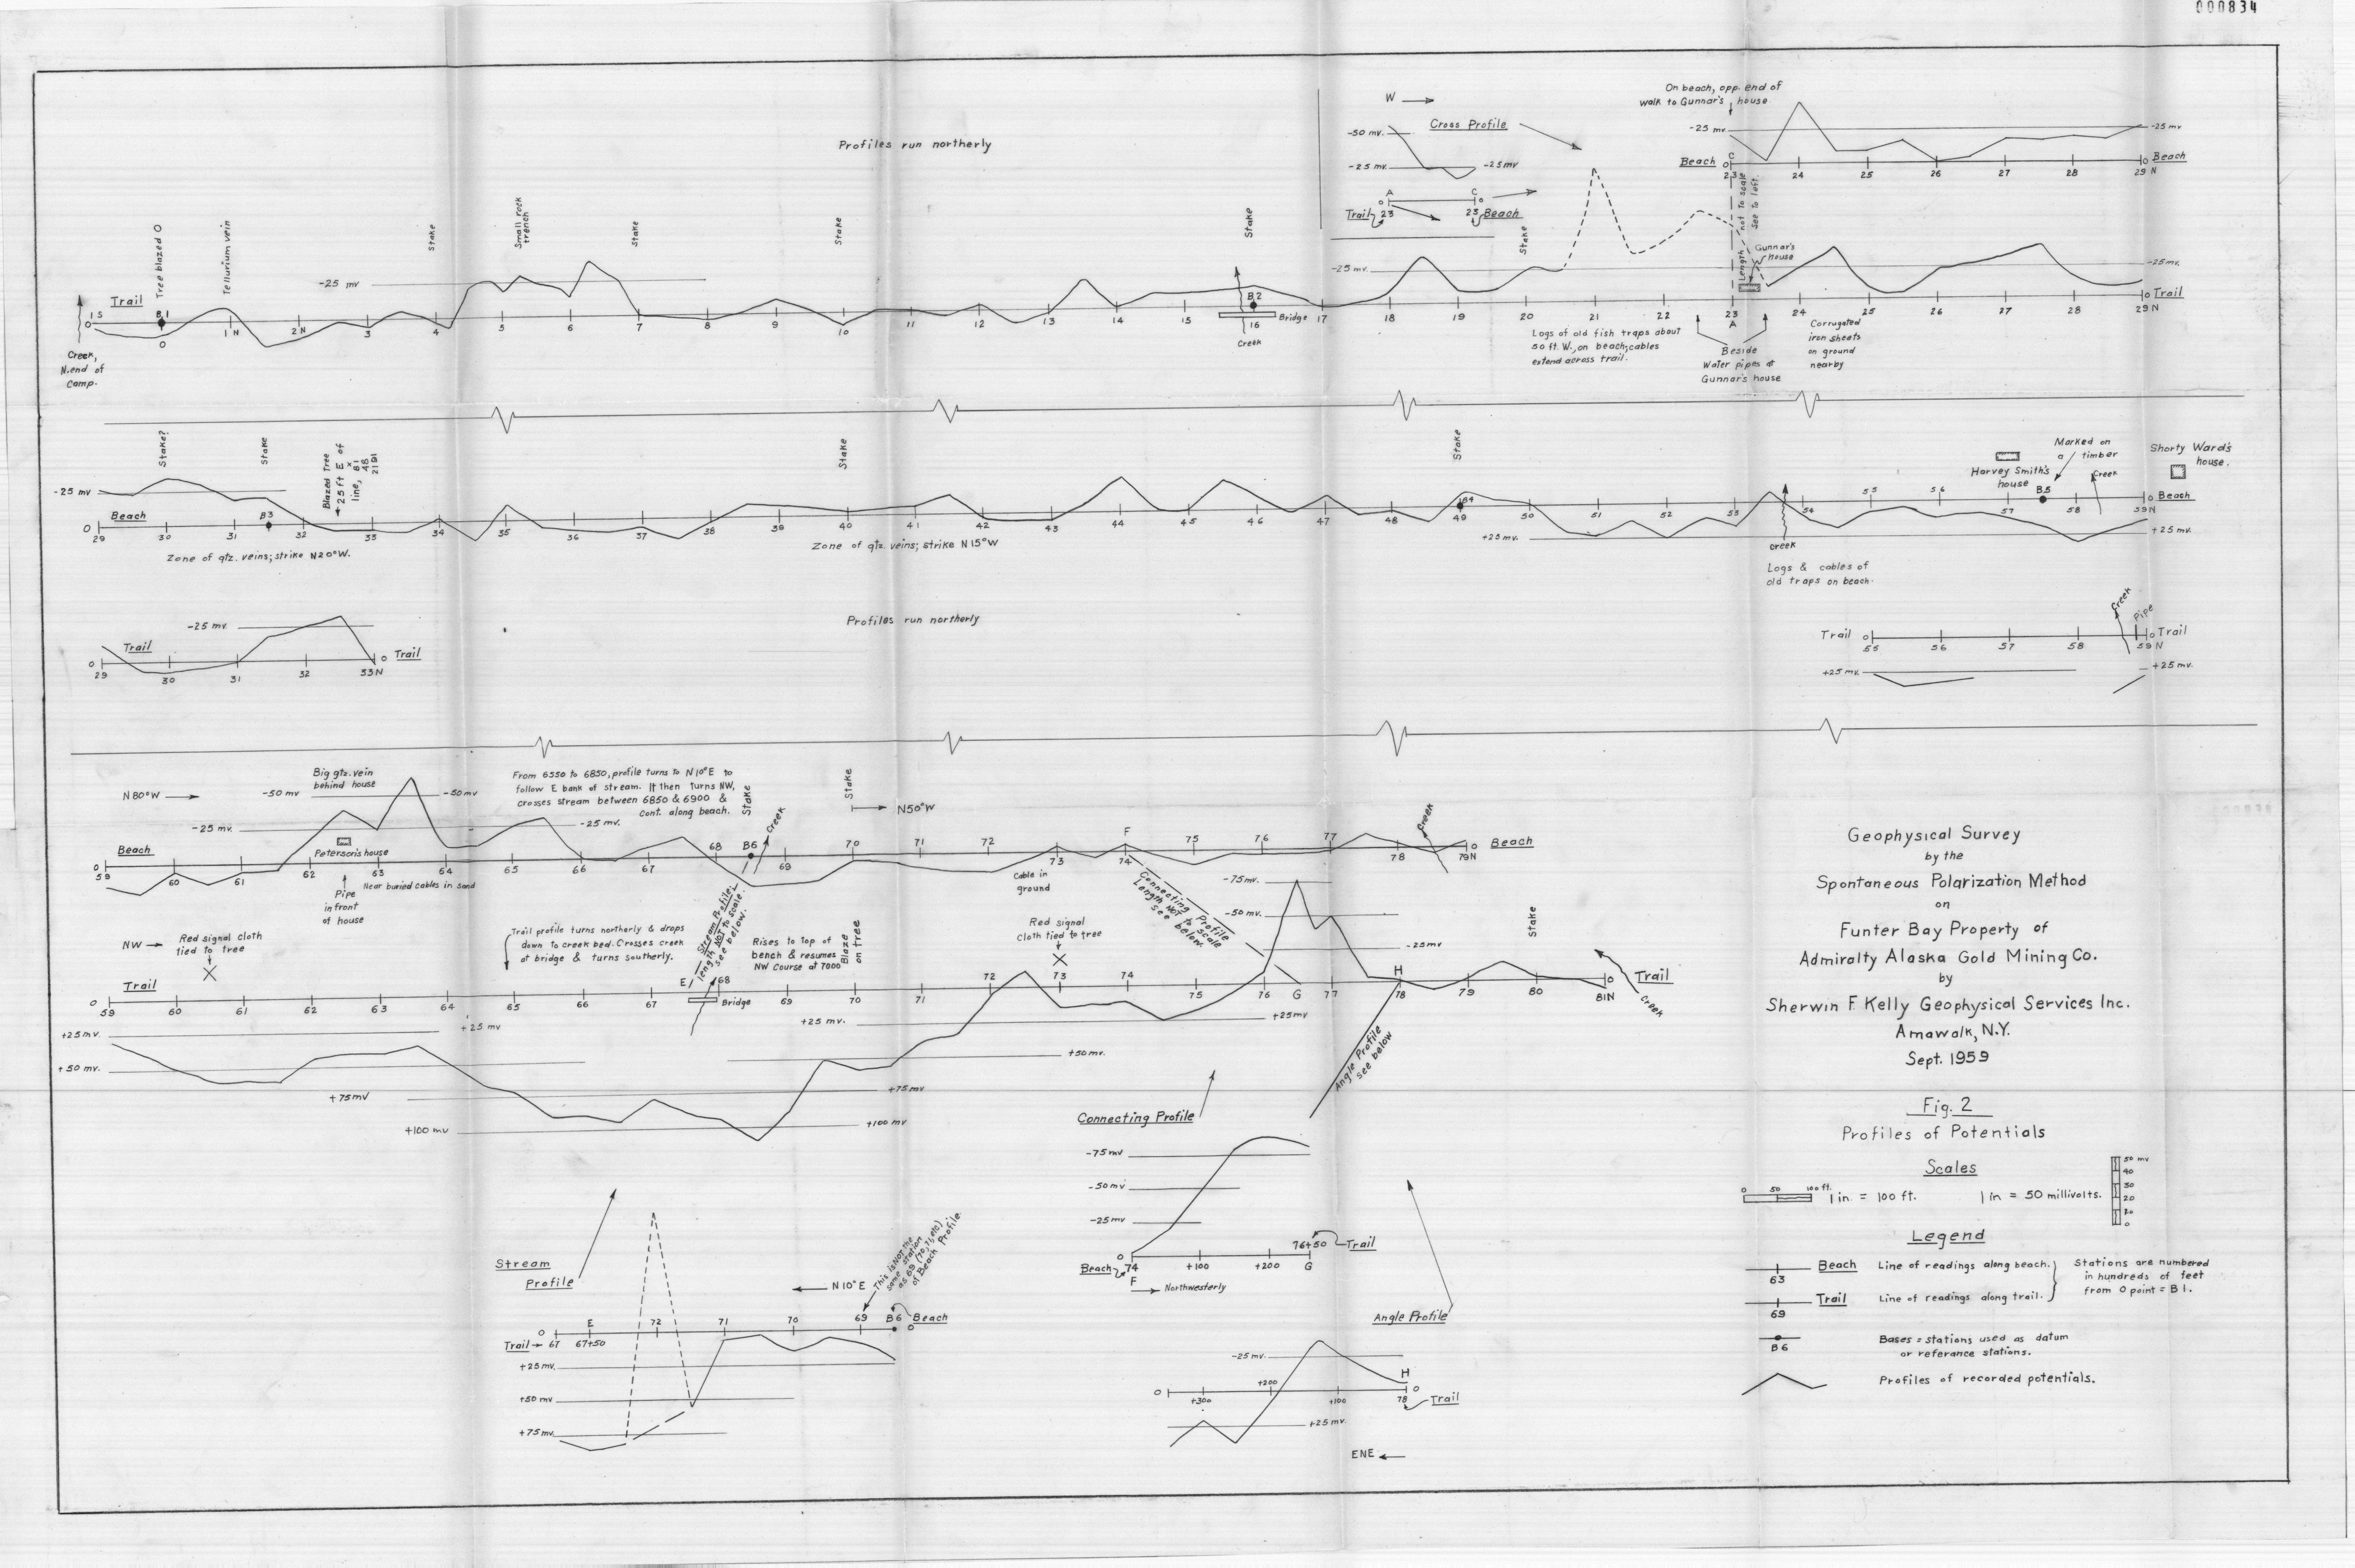 000834
Profiles run northerly
W
Cross Profile
-50 mv.
-25 mv.
-25 mv
A
C
0
0
Trail 23
23 Beach
On beach, opp. end of
walk to Gunnar's house
-25 mv.
-25 mv
Beach 0
C
0 Beach
23 24 25 26 27 28 29 N
Length not to scale
See to left.
Tree blazed 0
Tellurium vein
Stake
Small rock
trench
Stake
Stake
Stake
Stake
-25 mv
-25 mv.
-25 mv.
Gunnar's
house
Trail
1 S
0
B1
B2
0 Trail
0 1 N 2 N 3 4 5 6 7 8 9 10 11 12 13 14 15 16 17 18 19 20 21 22 23 24 25 26 27 28 29 N
A
Bridge
Creek
Creek,
N. end of
Camp.
Logs of old fish traps about
50 ft. W., on beach; cables
extend across trail.
Beside
Water pipes at
Gunnar's house
Corrugated
iron sheets
on ground
nearby
Stake?
Stake
Blazed Tree
25 ft E of
line,
Stake
Stake
Marked on
a timber
Shorty Ward's
house.
Harvey Smith's
house
Creek
-25 mv
Beach
0
B3
B4
B5
0 Beach
29 30 31 32 33 34 35 36 37 38 39 40 41 42 43 44 45 46 47 48 49 50 51 52 53 54 55 56 57 58 59 N
+25 mv.
+25 mv.
Zone of qtz. veins; strike N20°W.
Zone of qtz. veins; strike N15°W
creek
Logs & cables of
old traps on beach.
Profiles run northerly
-25 mv.
Trail
0
0 Trail
29 30 31 32 33N
Creek
Pipe
Trail 0
0 Trail
55 56 57 58 59 N
+25 mv.
+25 mv.
N80°W
Big qtz. vein
behind house
-50 mv
-50 mv
-25 mv.
-25 mv.
From 6550 to 6850, profile turns to N10°E to
follow E bank of stream. It then turns NW,
crosses stream between 6850 & 6900 &
cont. along beach.
Stake
Creek
Stake
N50°W
Creek
Beach
0
Peterson's house
B6
F
0 Beach
59 60 61 62 63 64 65 66 67 68 69 70 71 72 73 74 75 76 77 78 79N
Near buried cables in sand
Pipe
in front
of house
Cable in
ground
Connecting Profile
Length NOT to scale
see
below.
-75 mv.
-50 mv.
-25 mv
NW
Red signal cloth
tied to tree
Trail profile turns northerly & drops
down to creek bed. Crosses creek
at bridge & turns southerly.
Stream Profile;
length NOT to scale.
see below.
Rises to top of
bench & resumes
NW Course at 7000
Blaze
on tree
Red signal
cloth tied to tree
Stake
Trail
0
E
Bridge
G
H
0
Trail
Creek
59 60 61 62 63 64 65 66 67 68 69 70 71 72 73 74 75 76 77 78 79 80 81N
+25 mv.
+25 mv
+25 mv.
+25mv
+50 mv.
+50 mv.
+75 mv
+75 mv
+100 mv
+100 mv
Angle Profile
see below
Connecting Profile
-75 mv
-50 mv
-25 mv
0
76+50 Trail
Beach 74 +100 +200 G
F
Northwesterly
Stream
Profile
N10°E
This is NOT the
same station
as 69 (70, 71, etc)
of Beach Profile.
0
E
72 71 70 69 B6 Beach
0
Trail 67 67+50
+25 mv.
+50 mv
+75 mv.
Angle Profile
-25 mv.
H
0
+300 +200 +100 78
0
Trail
+25 mv.
ENE
Geophysical Survey
by the
Spontaneous Polarization Method
on
Funter Bay Property of
Admiralty Alaska Gold Mining Co.
by
Sherwin F. Kelly Geophysical Services Inc.
Amawalk, N.Y.
Sept. 1959
Fig. 2
Profiles of Potentials
Scales
0 50 100 ft.
1 in. = 100 ft.
1 in = 50 millivolts.
50 mv
40
30
20
10
0
Legend
63
Beach Line of readings along beach.
69
Trail Line of readings along trail.
Stations are numbered
in hundreds of feet
from 0 point = B 1.
B 6
Bases = stations used as datum
or referance stations.
Profiles of recorded potentials.